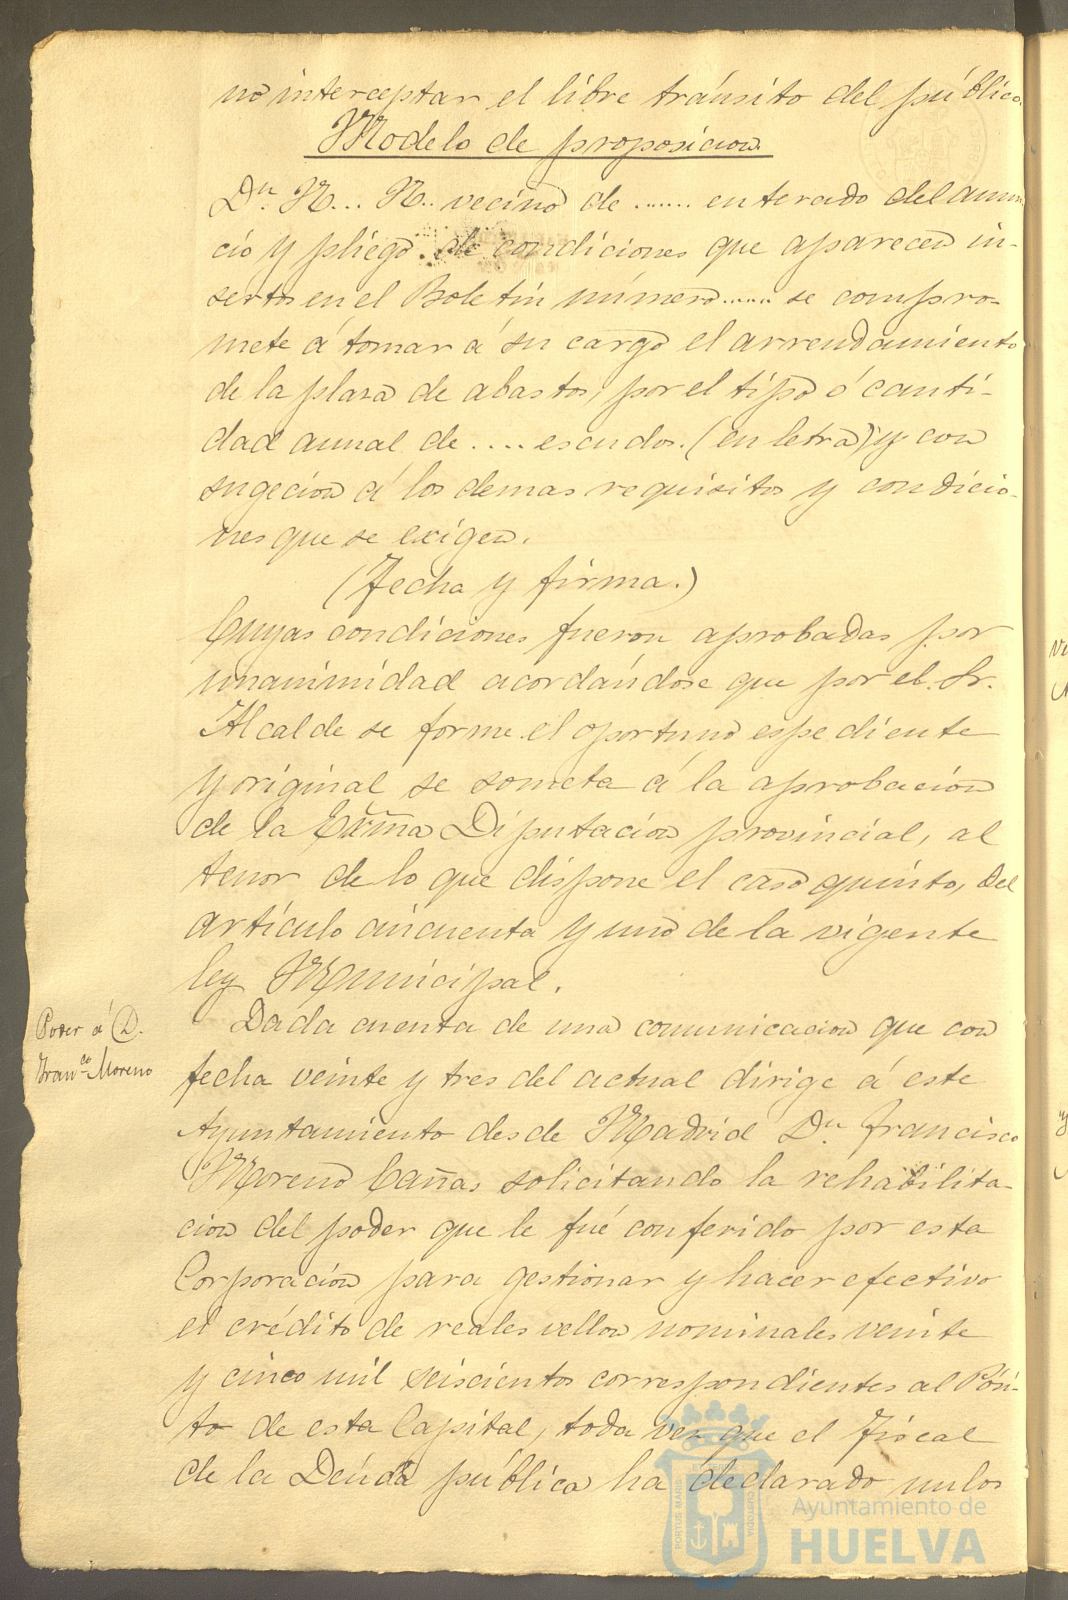 no interceptar el libre tránsito del público.
Modelo de proposicion
Dn. N... N.. vecino de ....... enterado del anun
cio y pliego de condiciones que aparecen in-
sertos en el Boletín número ...... se compro-
mete á tomar á su cargo el arrendamiento
de la plaza de abastos, por el tipo ó canti-
dad anual de .... escudos. (en letra) y con
sugecion á los demas requisitos y condicio-
nes que se exigen.
(Fecha y firma.)
Cuyas condiciones fueron aprobadas por
unanimidad acordándose que por el Sr.
Alcalde se forme el oportuno espediente
y original se someta á la aprobacion
de la Exma Diputacion provincial, al
tenor de lo que dispone el caso quinto, del
artículo cincuenta y uno de la vigente
ley Municipal.
Poder á D.
Franco. Moreno
Dada cuenta de una comunicacion que con
fecha veinte y tres del actual dirige á este
Ayuntamiento desde Madrid Dn. Francisco
Moreno Cañas solicitando la rehabilita-
cion del poder que le fué conferido por esta
Corporacion para gestionar y hacer efectivo
el crédito de reales vellon nominales veinte
y cinco mil seiscientos correspondientes al Pósi-
to de esta Capital, toda vez que el Fiscal
de la Deuda pública ha declarado nulos
PORTUS MARIS
CUSTODIA
Ayuntamiento de
HUELVA